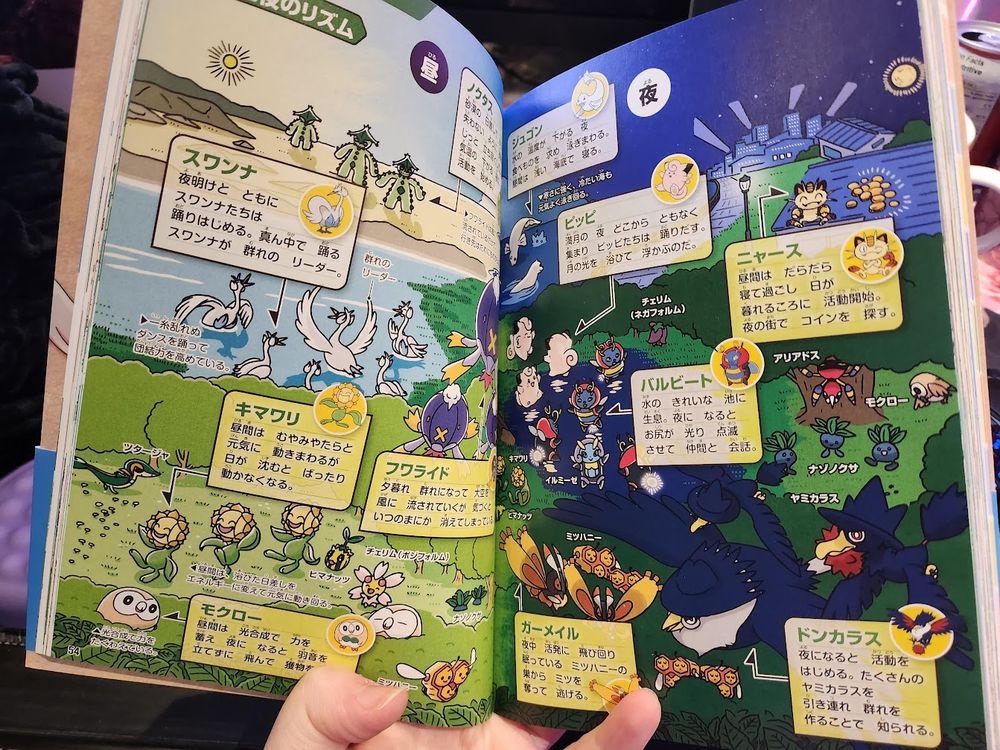 夜のリズム
昼
ノクタス
砂漠の
失わない
じっと
気温の
活動を 始める
スワンナ
夜明けと ともに
スワンナたちは
踊りはじめる。真ん中で 踊る
スワンナが 群れの リーダー。
群れの
リーダー
▶一糸乱れぬ
ダンスを踊って
団結力を高めている。
キマワリ
昼間は むやみやたらと
元気に 動きまわるが
日が 沈むと ぱったり
動かなくなる。
ツタージャ
フワライド
夕暮れ 群れになって 大空を
風に 流されていくが 気づくと
いつのまにか 消えてしまっている
チェリム(ポジフォルム)
ヒマナッツ
◀昼間は、浴びた日差しを
エネルギーに変えて元気に動き回る。
ナゾノクサ
モクロー
昼間は 光合成で 力を
蓄え 夜に なると 羽音を
立てずに 飛んで 獲物を
▲光合成で力を
たくわえている。
ミツハニー
54
夜
ジュゴン
水の 温度が 下がる 夜
食べものを 求め 泳ぎまわる。
昼間は 浅い 海底で 寝る。
▼寒さに強く、冷たい海も
元気よく泳ぎ回る。
ピッピ
満月の 夜 どこから ともなく
集まり ピッピたちは 踊りだす。
月の光を 浴びて 浮かぶのだ。
ニャース
昼間は だらだら
寝て過ごし 日が
暮れるころに 活動開始。
夜の街で コインを 探す。
チェリム
(ネガフォルム)
バルビート
水の きれいな 池に
生息。夜に なると
お尻が 光り 点滅
させて 仲間と 会話。
アリアドス
モクロー
ナゾノクサ
キマワリ
イルミーゼ
ヒマナッツ
ヤミカラス
ミツハニー
ガーメイル
夜中 活発に 飛び回り
眠っている ミツハニーの
巣から ミツを
奪って 逃げる。
ドンカラス
夜になると 活動を
はじめる。たくさんの
ヤミカラスを
引き連れ 群れを
作ることで 知られる。